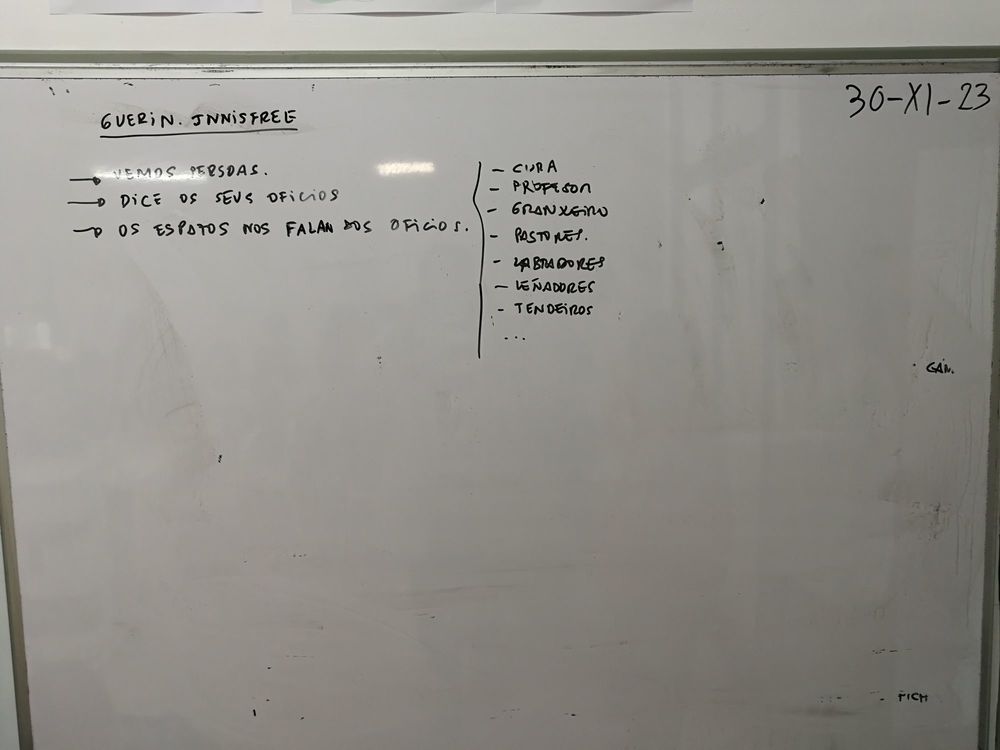 30-XI-23
GUERIN. INNISFREE
→ VEMOS PERSOAS.
→ DICE OS SEUS OFICIOS
→ OS ESPAZOS NOS FALAN DOS OFICIOS.
- CURA
- PROFESOR
- GRANXEIRO
- PASTORES.
- LABRADORES
- LEÑADORES
- TENDEIROS
...